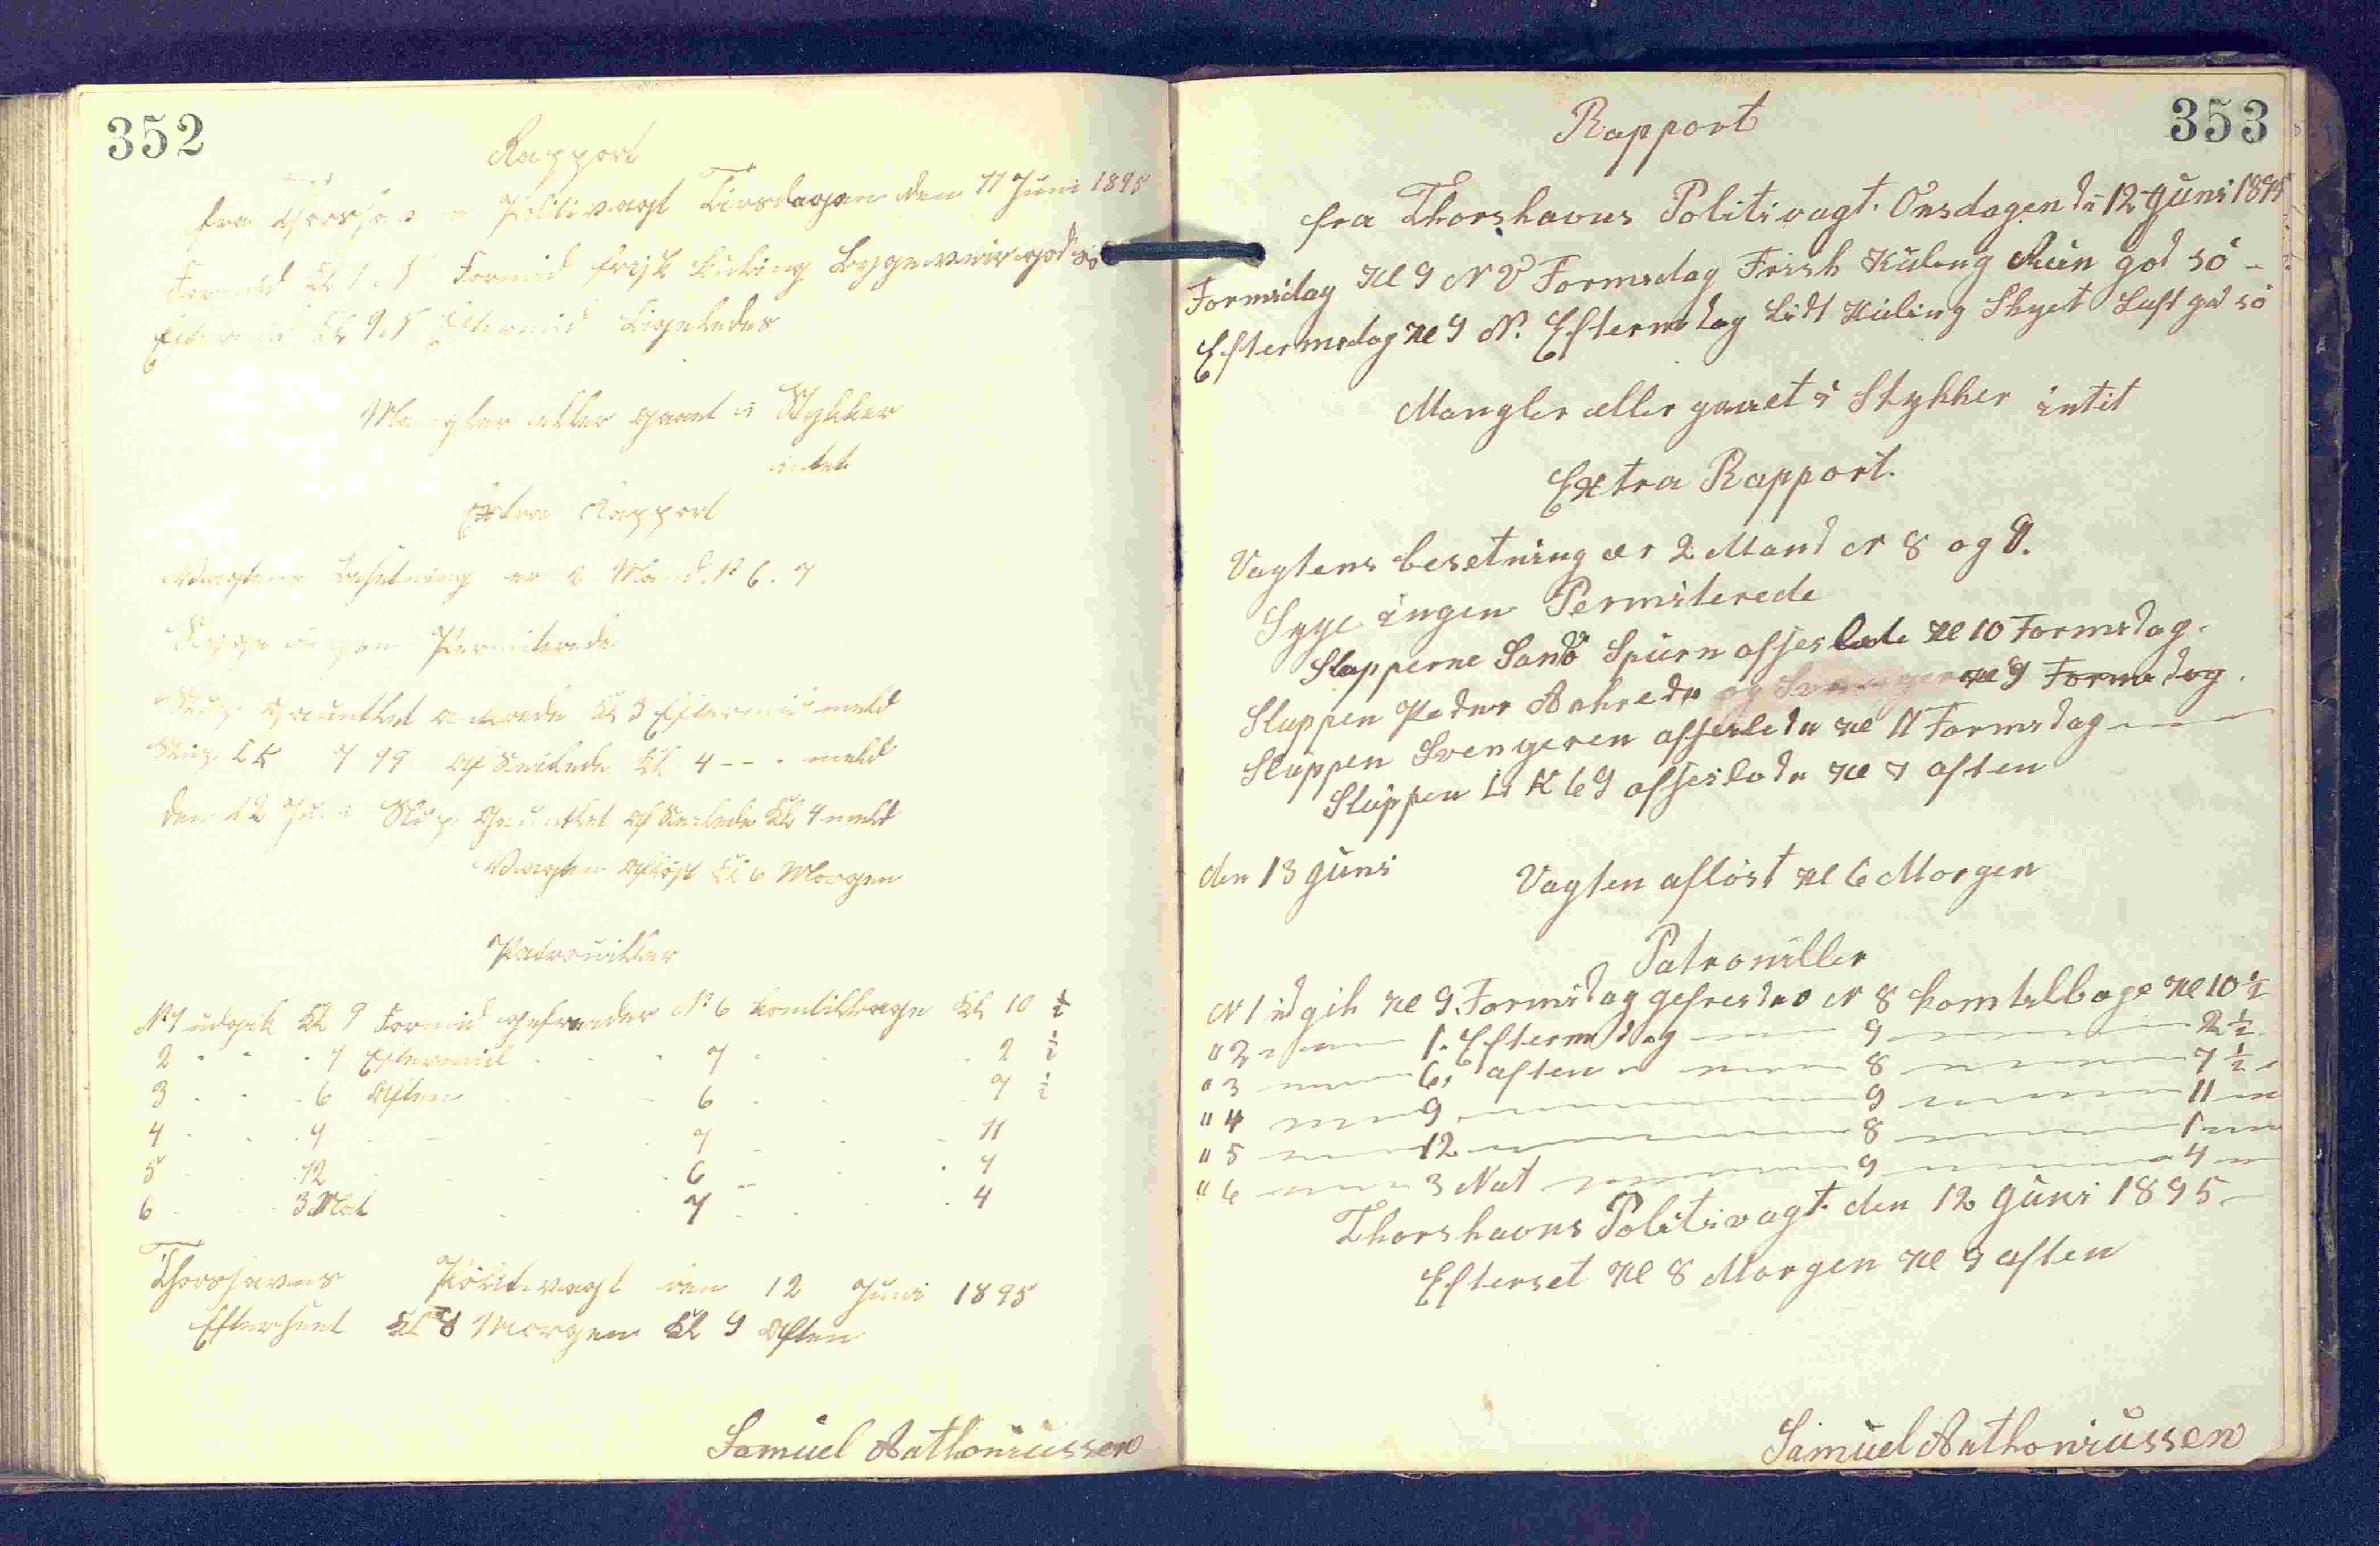 352
Rapport
fra Thorshavns Politivagt Tirsdagen den 11 Juni 1895
Formid Kl 9. N Formid frisk Kuling Bygeveir god sö
Eftermid Kl 9. N Eftermid Ligeledes
Mangler eller gaaet i Stykker
intet
Extra Rapport
Vagtens besetning er 2 Mand. N 6. 7
Syge ingen Permiterede
Skip Gauntlet ankrede Kl 3 Eftermid meld
Skip LK 799 af Seilede Kl 4 - - - meld
den 12 Juni Skip Gauntlet af Seilede Kl 4 meld
Vagten aflöst Kl 6 Morgen
Patrouiller
N 1 udgik Kl 9 Formid gefreider N 6 komtilbage Kl 10 ½
2 " " " 1 Eftermid " " " 7 " " 2 ½
3 " " 6 Aften " " 6 " " 7 ½
4 " " 9 " " 7 " " 11
5 " " 12 " " 6 " " 1
6 " " 3 Nat " " 7 " " 4
Thorshavns Politivagt den 12 Juni 1895
Efterseet Kl 8 Morgen Kl 9 Aften
Samuel Anthoniussen
353
Rapport
fra Thorshavns Politivagt. Onsdagen dn 12 Juni 1895
Formidag Kl 9 N V Formidag Frish Küling Rein god sö -
Eftermidag Kl 9 N. Eftermidag Lidt Küling Skyet Luft god sö
Mangler eller gaaet i Stykker intit
Extra Rapport.
Vagtens besetning er 2 Mand N 8 og 9.
Syge ingen Permiterede
Slupperne Sandö Spurn afseilede Kl 10 Formidag.
Sluppen Peder Ankrede og Svengeren Kl 9 Formidag.
Sluppen Svengeren afseilede Kl 11 Formidag - - -
Sluppen L K 69 afseilede Kl 7 aften
den 13 Juni Vagten aflöst Kl 6 Morgen
Patrouiller
N 1 udgik Kl 9. Formidag gefreider N 8 kom tilbage Kl 10 ½
" 2 — 1. Eftermidag — 9 — 2 ½
" 3 — 6, aften — 8 — 7 ½
" 4 — 9 — 9 — 11
" 5 — 12 — 8 — 1
" 6 — 3 Nat — 9 — 4
Thorshavns Politivagt. den 12 Juni 1895
Efterset Kl 8 Morgen Kl 9 aften
Samuel Anthoniussen